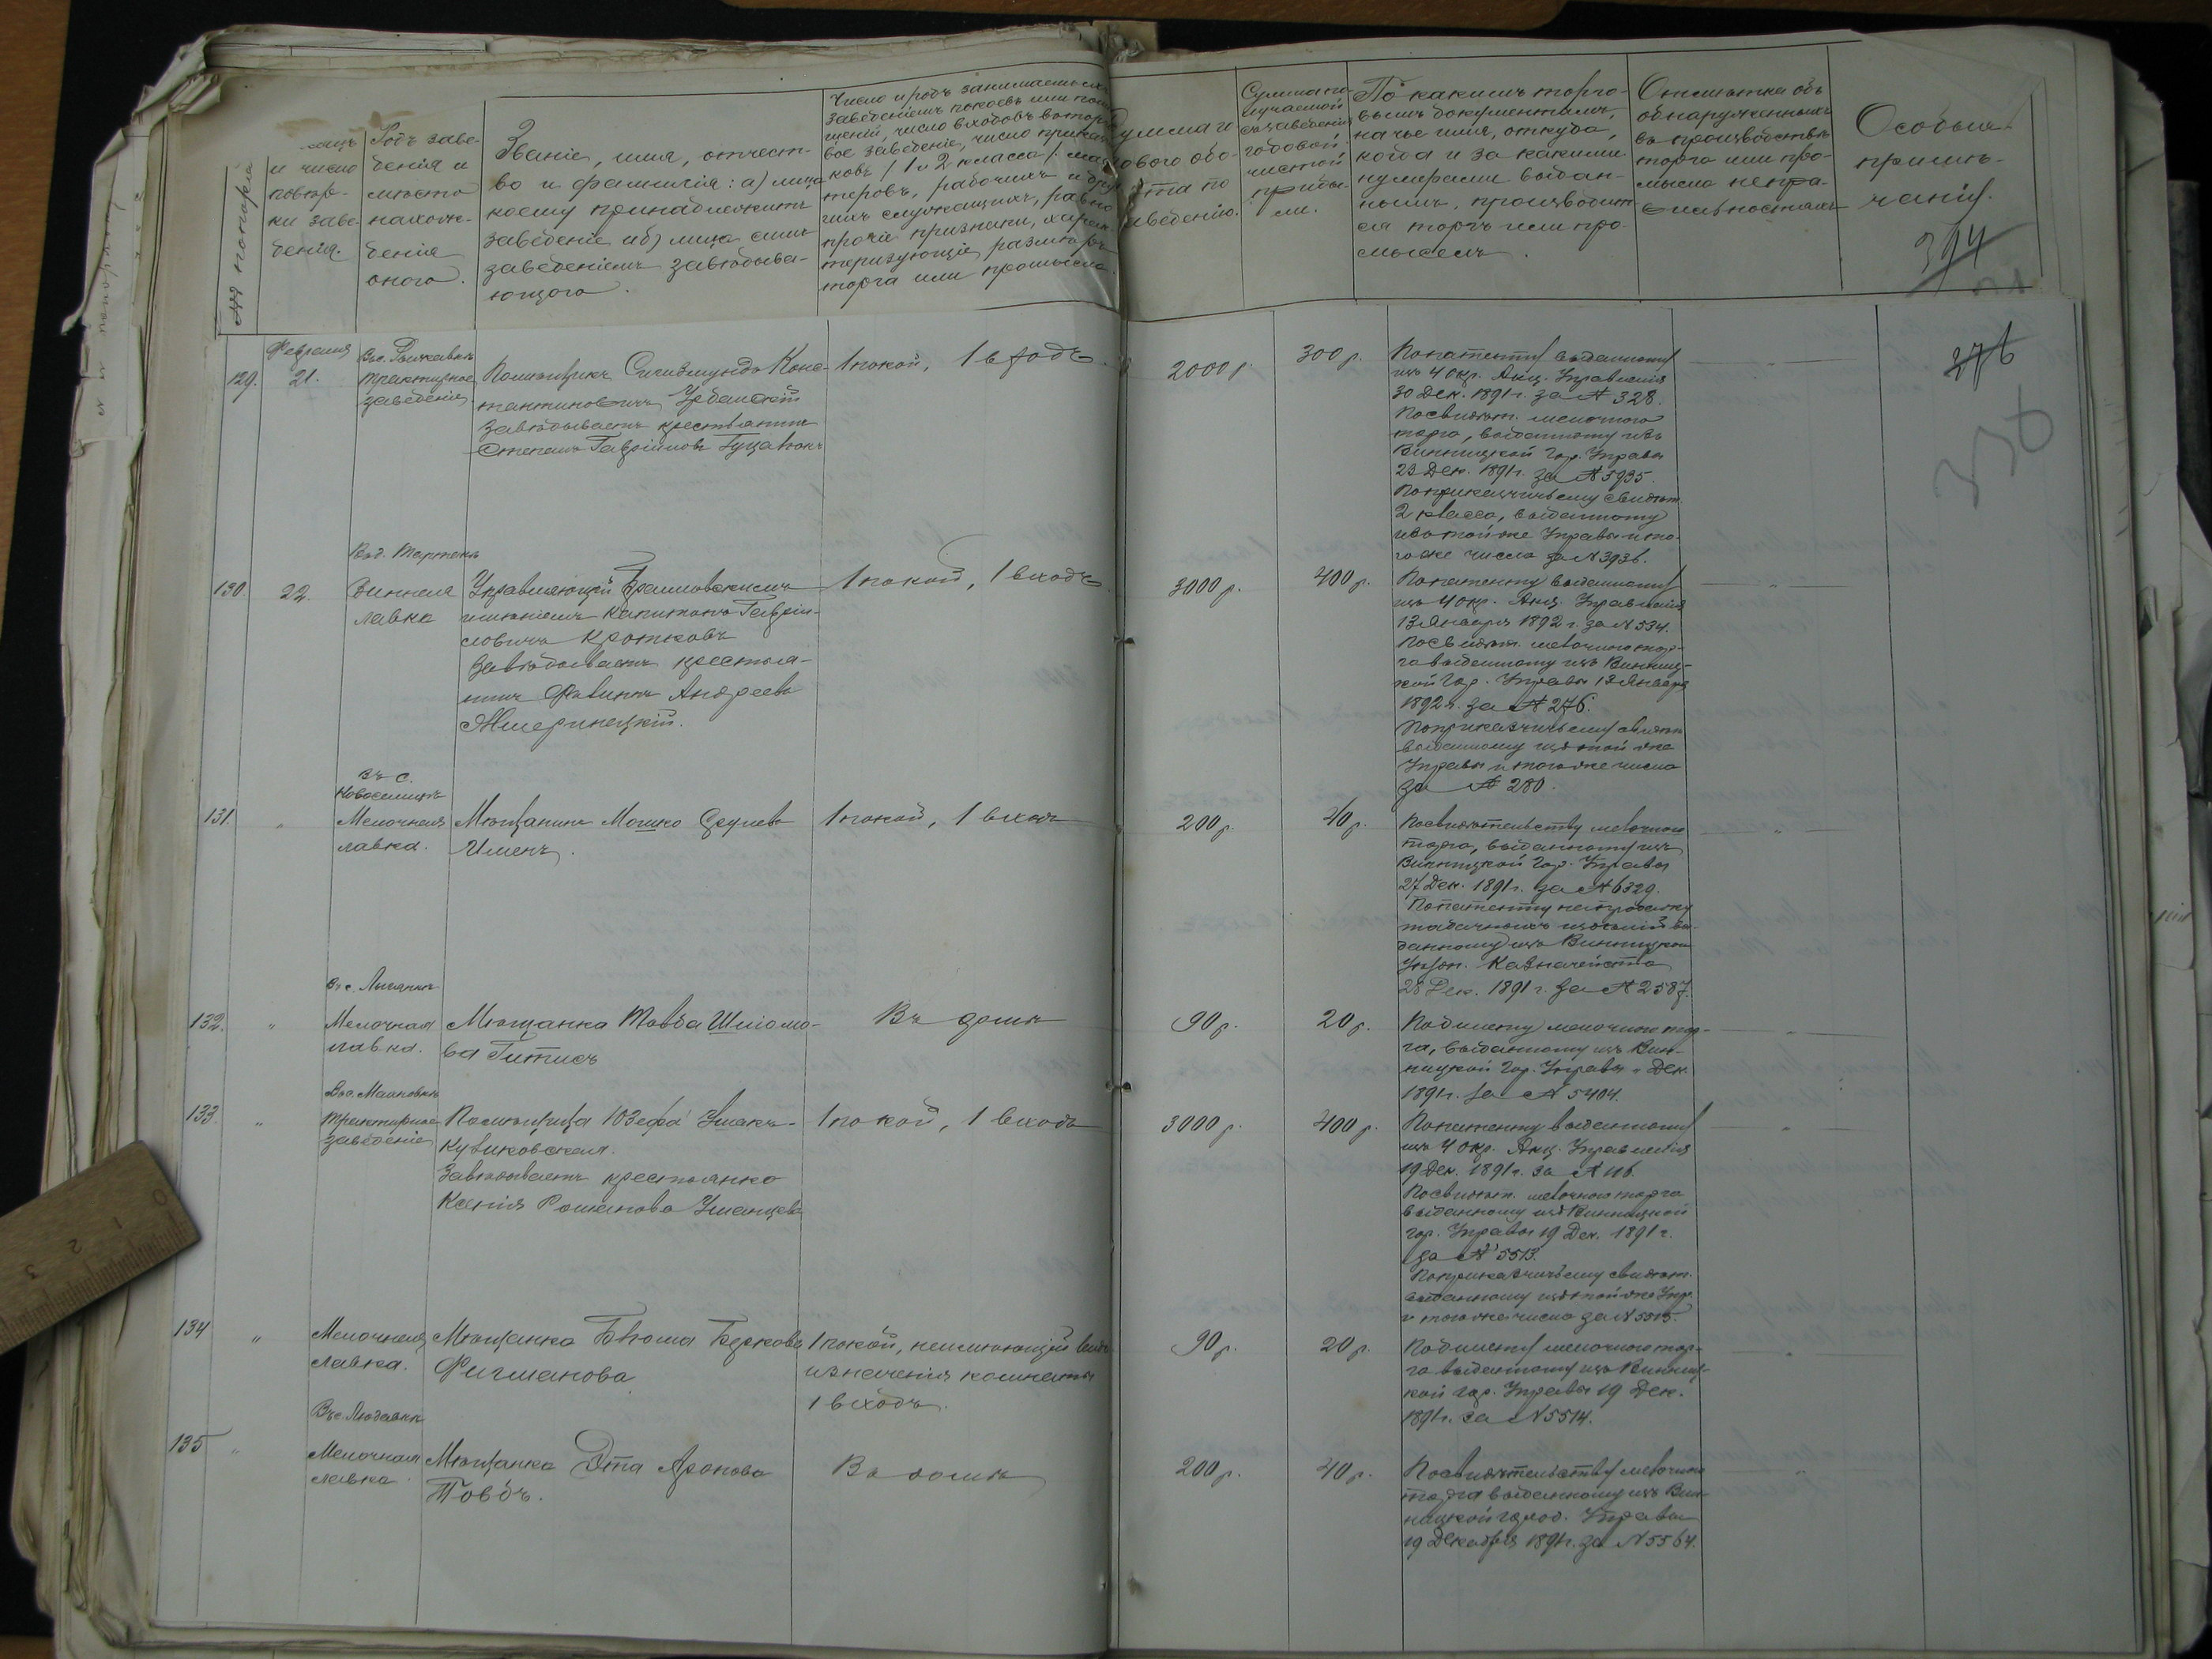 №№ по порядку
и число
повѣр-
ки заве-
денія.
Родъ заве-
денія и
мѣсто
нахож-
денія
оного.
Званіе, имя, отчест-
во и фамилія: а) лица
коему принадлежитъ
заведеніе и б) лица симъ
заведеніемъ завѣдыва-
ющаго.
Число и родъ занимаемыхъ
заведеніемъ покоевъ или
щеній, число входовъ
вое заведеніе, число
ковъ / 1 и 2 класса /
теровъ, рабочихъ и
гихъ служащихъ, равно
прочіе признаки, харак-
теризующіе размѣръ
торга или промысла.
Сумма г
ового обо-
та по
аведенію.
Сумма по-
лучаемой
съ заведенія
годовой
чистой
прибы-
ли.
По какимъ торго-
вымъ документамъ,
на чье имя, откуда,
когда и за какими
нумерами выдан-
нымъ, производит
ся торгъ или про
мыселъ.
Отмѣтка объ
обнаруженныхъ
въ производствѣ
торга или про-
мысла непра-
вильностяхъ
Особыя
примѣ-
чанія.
394
129.
Февраля
21.
трактирное
заведеніе
Помѣщикъ Сигизмундъ Конс-
тантиновичъ Урбанскій
Завѣдываетъ крестьянинъ
Степанъ Гавріиловъ
1 покой, 1 входъ.
2000 р.
300 р.
По патенту выданному
изъ 4 окр. Акц. Управленія
30 Дек. 1891 г. за № 328.
По свидѣт. мелочного
торга, выданному изъ
Винницкой Гор. Управы
23 Дек. 1891 г. за № 5935.
По приказчичьему свидѣт.
2 класса, выданному
изъ той же Управы и то-
го же числа за № 3936.
376
130.
22.
Винная
лавка
Управляющій Браиловскимъ
имѣніемъ Капитонъ Гаврии-
ловичъ Кротковъ
Завѣдываетъ крестья-
нинъ Андреевъ
Жмеринецкій.
1 покой, 1 входъ.
3000 р.
400 р.
По патенту выданному
изъ 4 окр. Акц. Управленія
13 Января 1892 г. за № 534.
По свидѣт. мелочного тор-
га выданному изъ Винниц-
кой Гор. Управы 13 Января
1892 г. за № 276.
По приказчичьему свидѣт
выданному изъ той же
Управы и того же числа
за № 280.
131.
"
въ с.
Новоселицѣ
Мелочная
лавка.
Мѣщанинъ Мошко
1 покой, 1 входъ
200 р.
40 р.
По свидѣтельству мелочного
торга, выданному изъ
Винницкой Гор. Управы
27 Дек. 1891 г. за № 6329.
По патенту на продажу
табачныхъ издѣлій вы-
данному изъ Винницкаго
Уѣздн. Казначейства
28 Дек. 1891 г. за № 2587.
132.
"
Мелочная
лавка.
Мѣщанка Товба Шлиомо-
ва Гитисъ
Въ домѣ
90 р.
20 р.
По билету мелочного тор-
га, выданному изъ Вин-
ницкой Гор. Управы " Дек.
1891 г. за № 5404.
133.
"
Въ с. Маиковкѣ
трактирное
заведеніе
Помѣщица Юзефа Ушакъ-
Куликовская.
Завѣдываетъ крестьянка
Ксенія Романова Уманцева
1 покой, 1 входъ
3000 р.
400 р.
По патенту выданному
изъ 4 окр. Акц. Управленія
19 Дек. 1891 г. за № 116.
По свидѣт. мелочного торга
выданному изъ Винницкой
Гор. Управы 19 Дек. 1891 г.
за № 5513.
По приказчичьему свидѣт.
выданному изъ той же Упр.
и того же числа за № 5515.
134
"
Мелочная
лавка.
Мѣщанка Беркова
Фигманова
1 покой, неимѣющій вида
и значенія комнаты
1 входъ.
90 р.
20 р.
По билету мелочного тор-
га выданному изъ Винниц-
кой Гор. Управы 19 Дек.
1891 г. за № 5514.
135
"
Мелочная
лавка.
Мѣщанка Эта Аронова
Въ домѣ
200 р.
40 р.
По свидѣтельству мелочного
торга выданному изъ Вин-
ницкой город. Управы
19 Декабря 1891 г. за № 5564.
0
1
2
3